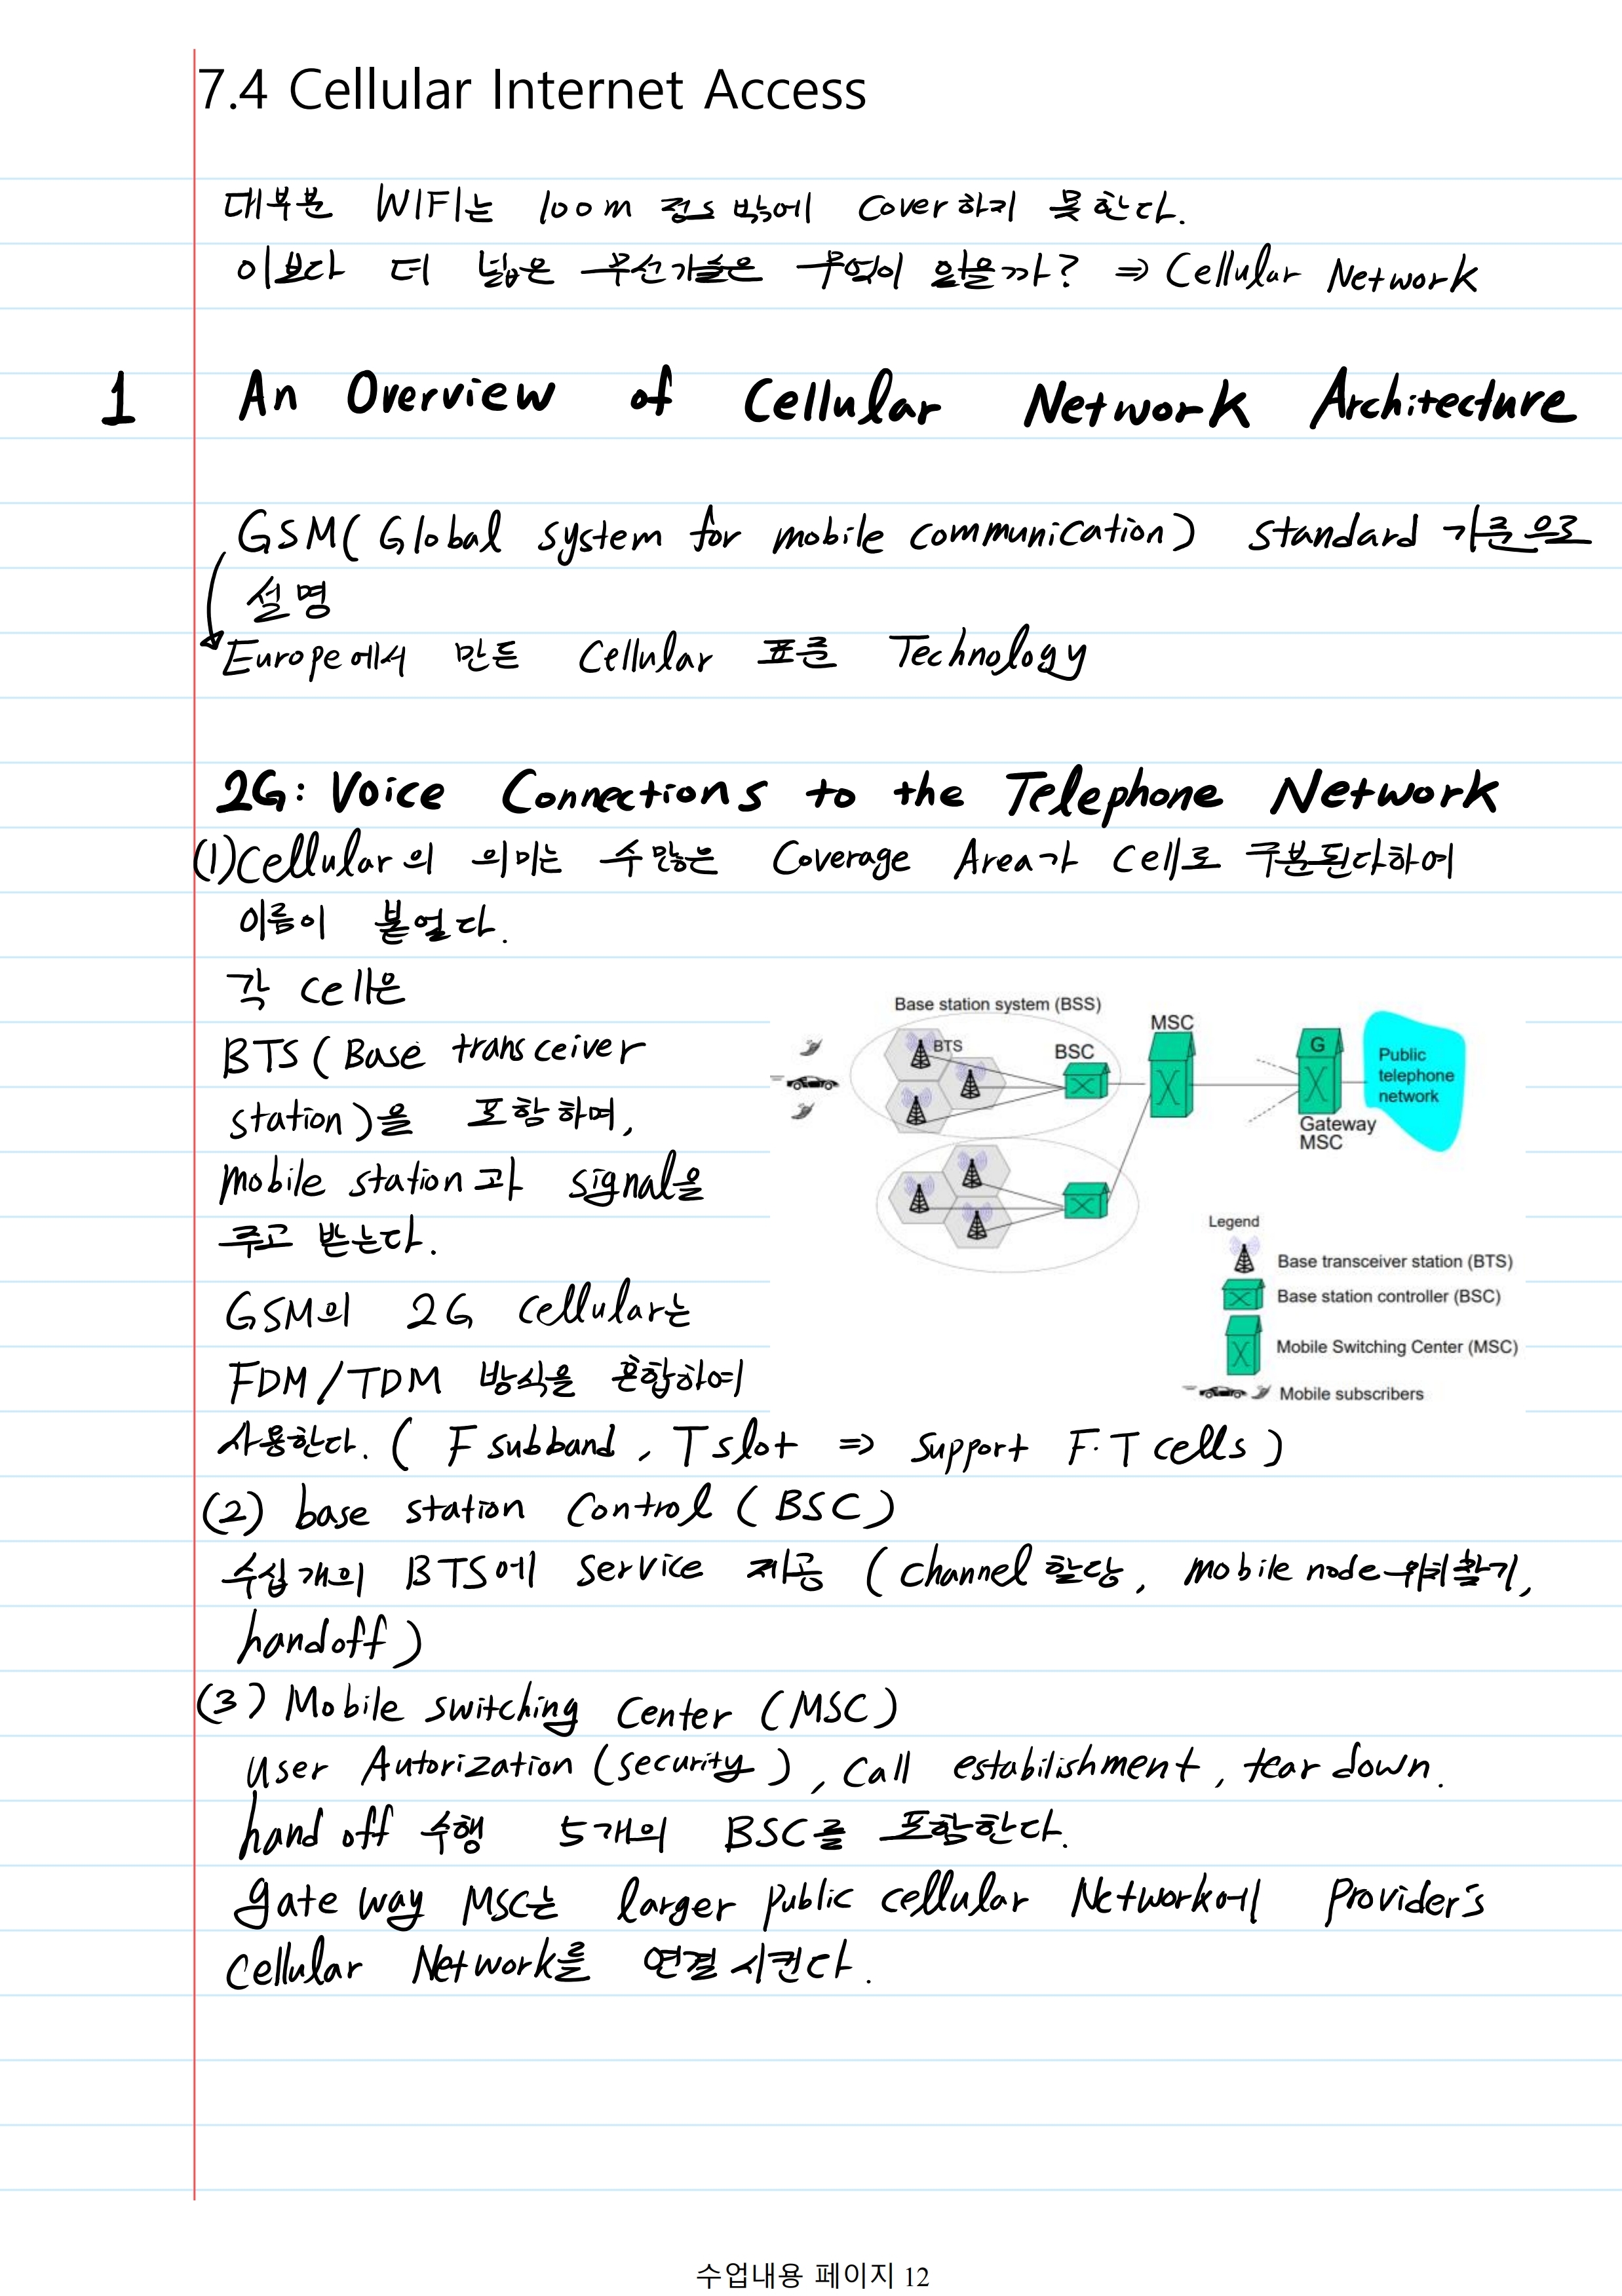 7.4 Cellular Internet Access
대부분 WIFI는 100m 정도 밖에 Cover하지 못한다.
이보다 더 넓은 무선기술은 무엇이 있을까? ⇒ Cellular Network
1 An Overview of Cellular Network Architecture
GSM(Global system for mobile communication) standard 기준으로
설명
Europe에서 만든 Cellular 표준 Technology
2G: Voice Connections to the Telephone Network
(1)Cellular의 의미는 수 많은 Coverage Area가 Cell로 구분된다하여
이름이 붙었다.
각 Cell은
BTS(Base transceiver
station)을 포함하며,
mobile station과 signal을
주고 받는다.
GSM의 2G cellular는
FDM/TDM 방식을 혼합하여
사용한다. ( F subband, T slot ⇒ support F·T cells )
Base station system (BSS)
BTS
BSC
MSC
G
Gateway
MSC
Public
telephone
network
Legend
Base transceiver station (BTS)
Base station controller (BSC)
Mobile Switching Center (MSC)
Mobile subscribers
(2) base station Control (BSC)
수십개의 BTS에 Service 제공 (channel 할당, mobile node위치찾기,
handoff)
(3) Mobile switching Center (MSC)
User Autorization (security), Call estabilishment, tear down.
hand off 수행 5개의 BSC를 포함한다.
gate way MSC는 larger public cellular Network에 Provider's
Cellular Network를 연결시킨다.
수업내용 페이지 12